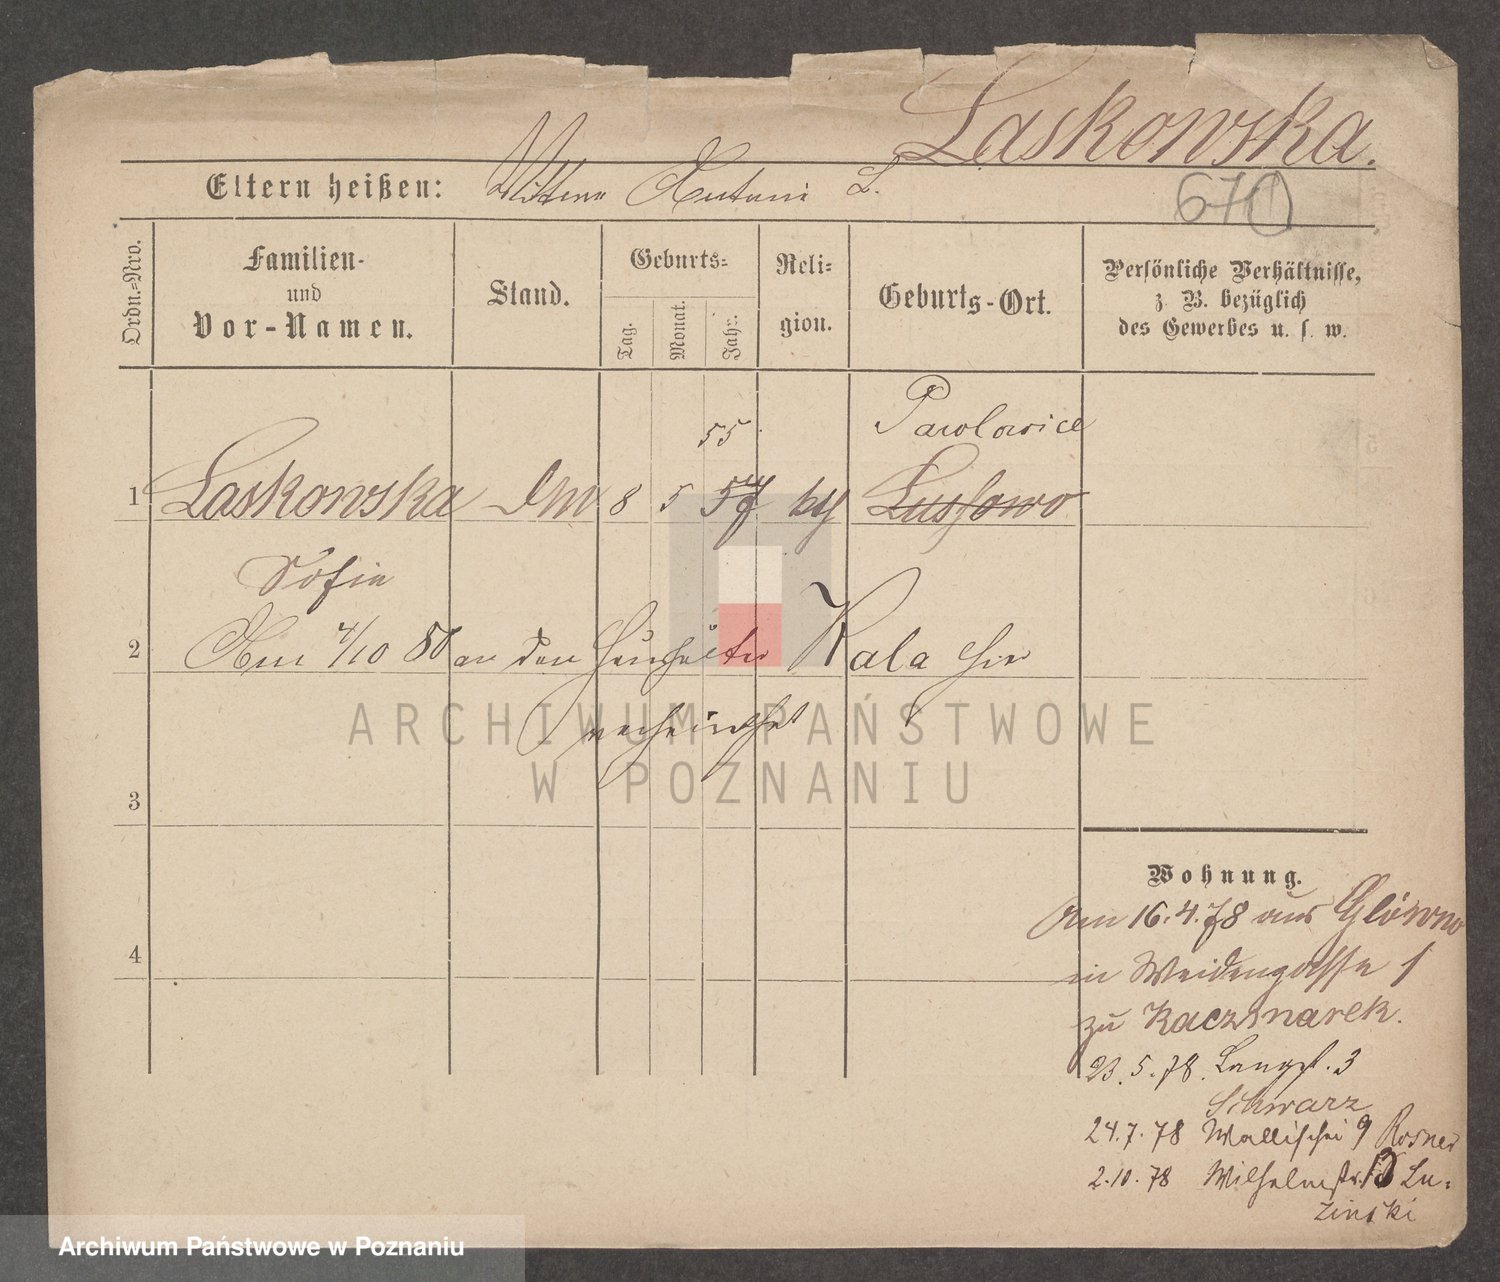 Laskowska.
Eltern heißen: Antoni L.
670
Ordn.=Nro.
Familien-
und
Vor-Namen.
Stand.
Geburts=
Tag.
Monat.
Jahr.
Reli=
gion.
Geburts-Ort.
Persönliche Verhältnisse,
z. B. bezüglich
des Gewerbes u. s. w.
55
Pawlowice
1 Laskowska DM 8 5 57 kth Lussowo
Sofie
2 Am 4/10 80 an den Haushälter Kala hier
verheirathet
3
4
Wohnung.
Am 16.4.78 aus Glówno
in Weidengasse 1
zu Kaczmarek.
23.5.78. Langst. 3
Schwarz
24.7.78 Wallischei 9 Rosner
2.10.78 Wilhelmstr. 13 Lu=
zinski
ARCHIWUM PAŃSTWOWE
W POZNANIU
Archiwum Państwowe w Poznaniu